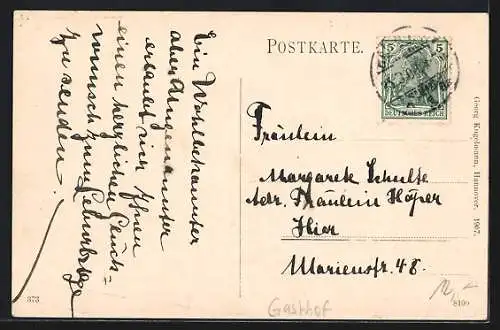 POSTKARTE.
5 5
DEUTSCHES REICH
Ein Wohlbekannter
aber Ungenannter
erlaubt sich Ihnen
einen herzlichen Glück-
wunsch zum Geburtstage
zu senden!
Fräulein
Margarete Schulte
Adr. Fräulein Höper
Hier
Marienstr. 48.
Georg Kugelmann, Hannover. 1907.
373
8100
Gasthof